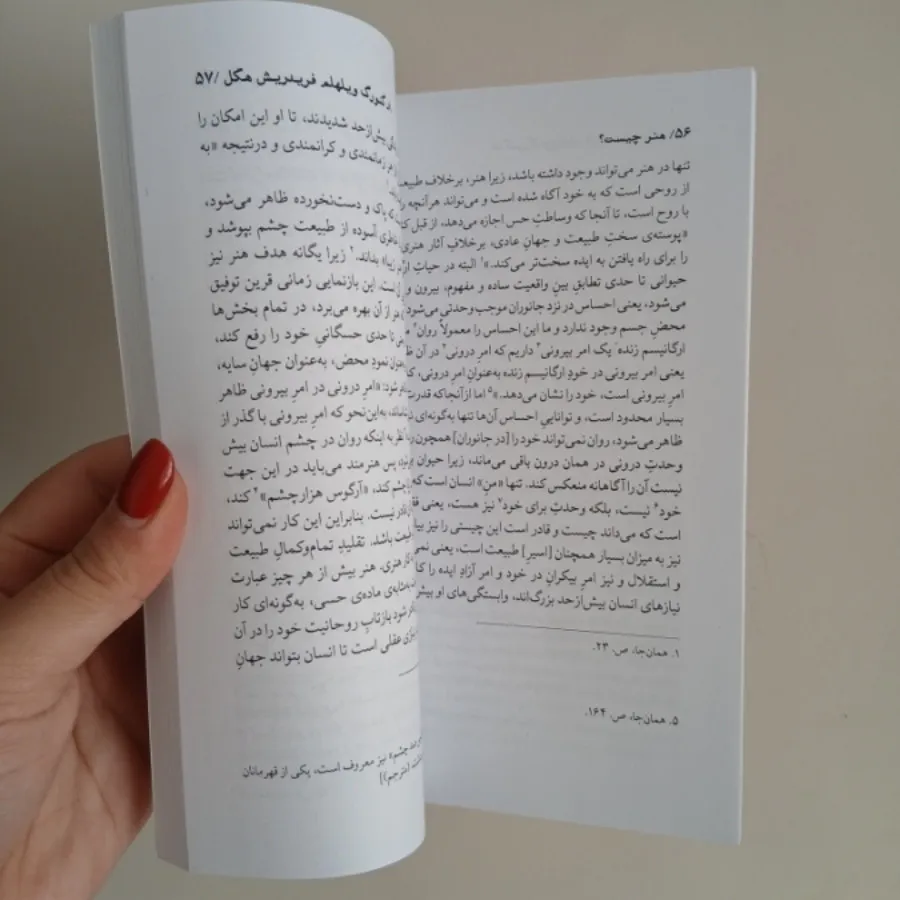 ۵۶/ هنر چیست؟
تنها در هنر می‌تواند وجود داشته باشد، زیرا هنر، برخلاف
از روحی است که به خود آگاه شده است و می‌تواند هرآنچه را
با روح است، تا آنجا که وساطتِ حس اجازه می‌دهد، از قبل
«پوسته‌ی سختِ طبیعت و جهانِ عادی، برخلافِ آثار هنری
را برای راه یافتن به ایده سخت‌تر می‌کند.»۱ البته در حیاتِ
حیوانی تا حدی تطابقِ بینِ واقعیت ساده و مفهوم، بیرون و
می‌شود، یعنی احساس در نزد جانوران موجب وحدتی می‌شود
محضِ جسم وجود ندارد و ما این احساس را معمولاً روان۲
ارگانیسم زنده یک امر بیرونی۳ داریم که امرِ درونی۴ در آن
یعنی امر بیرونی در خودِ ارگانیسم زنده به‌عنوانِ امرِ درونی،
امرِ بیرونی است، خود را نشان می‌دهد.»۵ اما ازآنجاکه قدرت
بسیار محدود است، و تواناییِ احساس آن‌ها تنها به‌گونه‌ای
ظاهر می‌شود، روان نمی‌تواند خود را [در جانوران] همچون
وحدتِ درونی در همان درون باقی می‌ماند، زیرا حیوان
نیست آن را آگاهانه منعکس کند. تنها «منِ» انسان است که
خود۶ نیست، بلکه وحدتِ برای خود۷ نیز هست، یعنی
است که می‌داند چیست و قادر است این چیستی را نیز
نیز به میزان بسیار همچنان [اسیرِ] طبیعت است، یعنی
و استقلال و نیز امرِ بیکرانِ در خود و امر آزادِ ایده را
نیازهای انسان بیش‌ازحد بزرگ‌اند، وابستگی‌های او بیش
۱. همان‌جا، ص. ۲۳.
۵. همان‌جا، ص. ۱۶۴.
گئورگ ویلهلم فریدریش هگل /۵۷
بیش‌ازحد شدیدند، تا او این امکان را
زمانمندی و کرانمندی و درنتیجه «به
پاک و دست‌نخورده ظاهر می‌شود،
آسوده از طبیعت چشم بپوشد و
بداند.۲ زیرا یگانه هدف هنر نیز
است. این بازنمایی زمانی قرین توفیق
از آن بهره می‌برد، در تمام بخش‌ها
تا حدی حسگانیِ خود را رفع کند،
نمودِ محض، به‌عنوان جهانِ سایه،
شود: «امرِ درونی در امرِ بیرونی ظاهر
به‌این‌نحو که امرِ بیرونی با گذر از
نظر به اینکه روان در چشم انسان بیش
پس هنرمند می‌باید در این جهت
چشم کند، «آرگوس هزارچشم»۴ کند،
قادر نیست. بنابراین این کار نمی‌تواند
باشد. تقلیدِ تمام‌وکمالِ طبیعت
هنری. هنر بیش از هر چیز عبارت
به‌مثابه‌ی ماده‌ی حسی، به‌گونه‌ای کار
شود بازتابِ روحانیت خود را در آن
عقلی است تا انسان بتواند جهانِ
چشم» نیز معروف است، یکی از قهرمانان
(مترجم)]